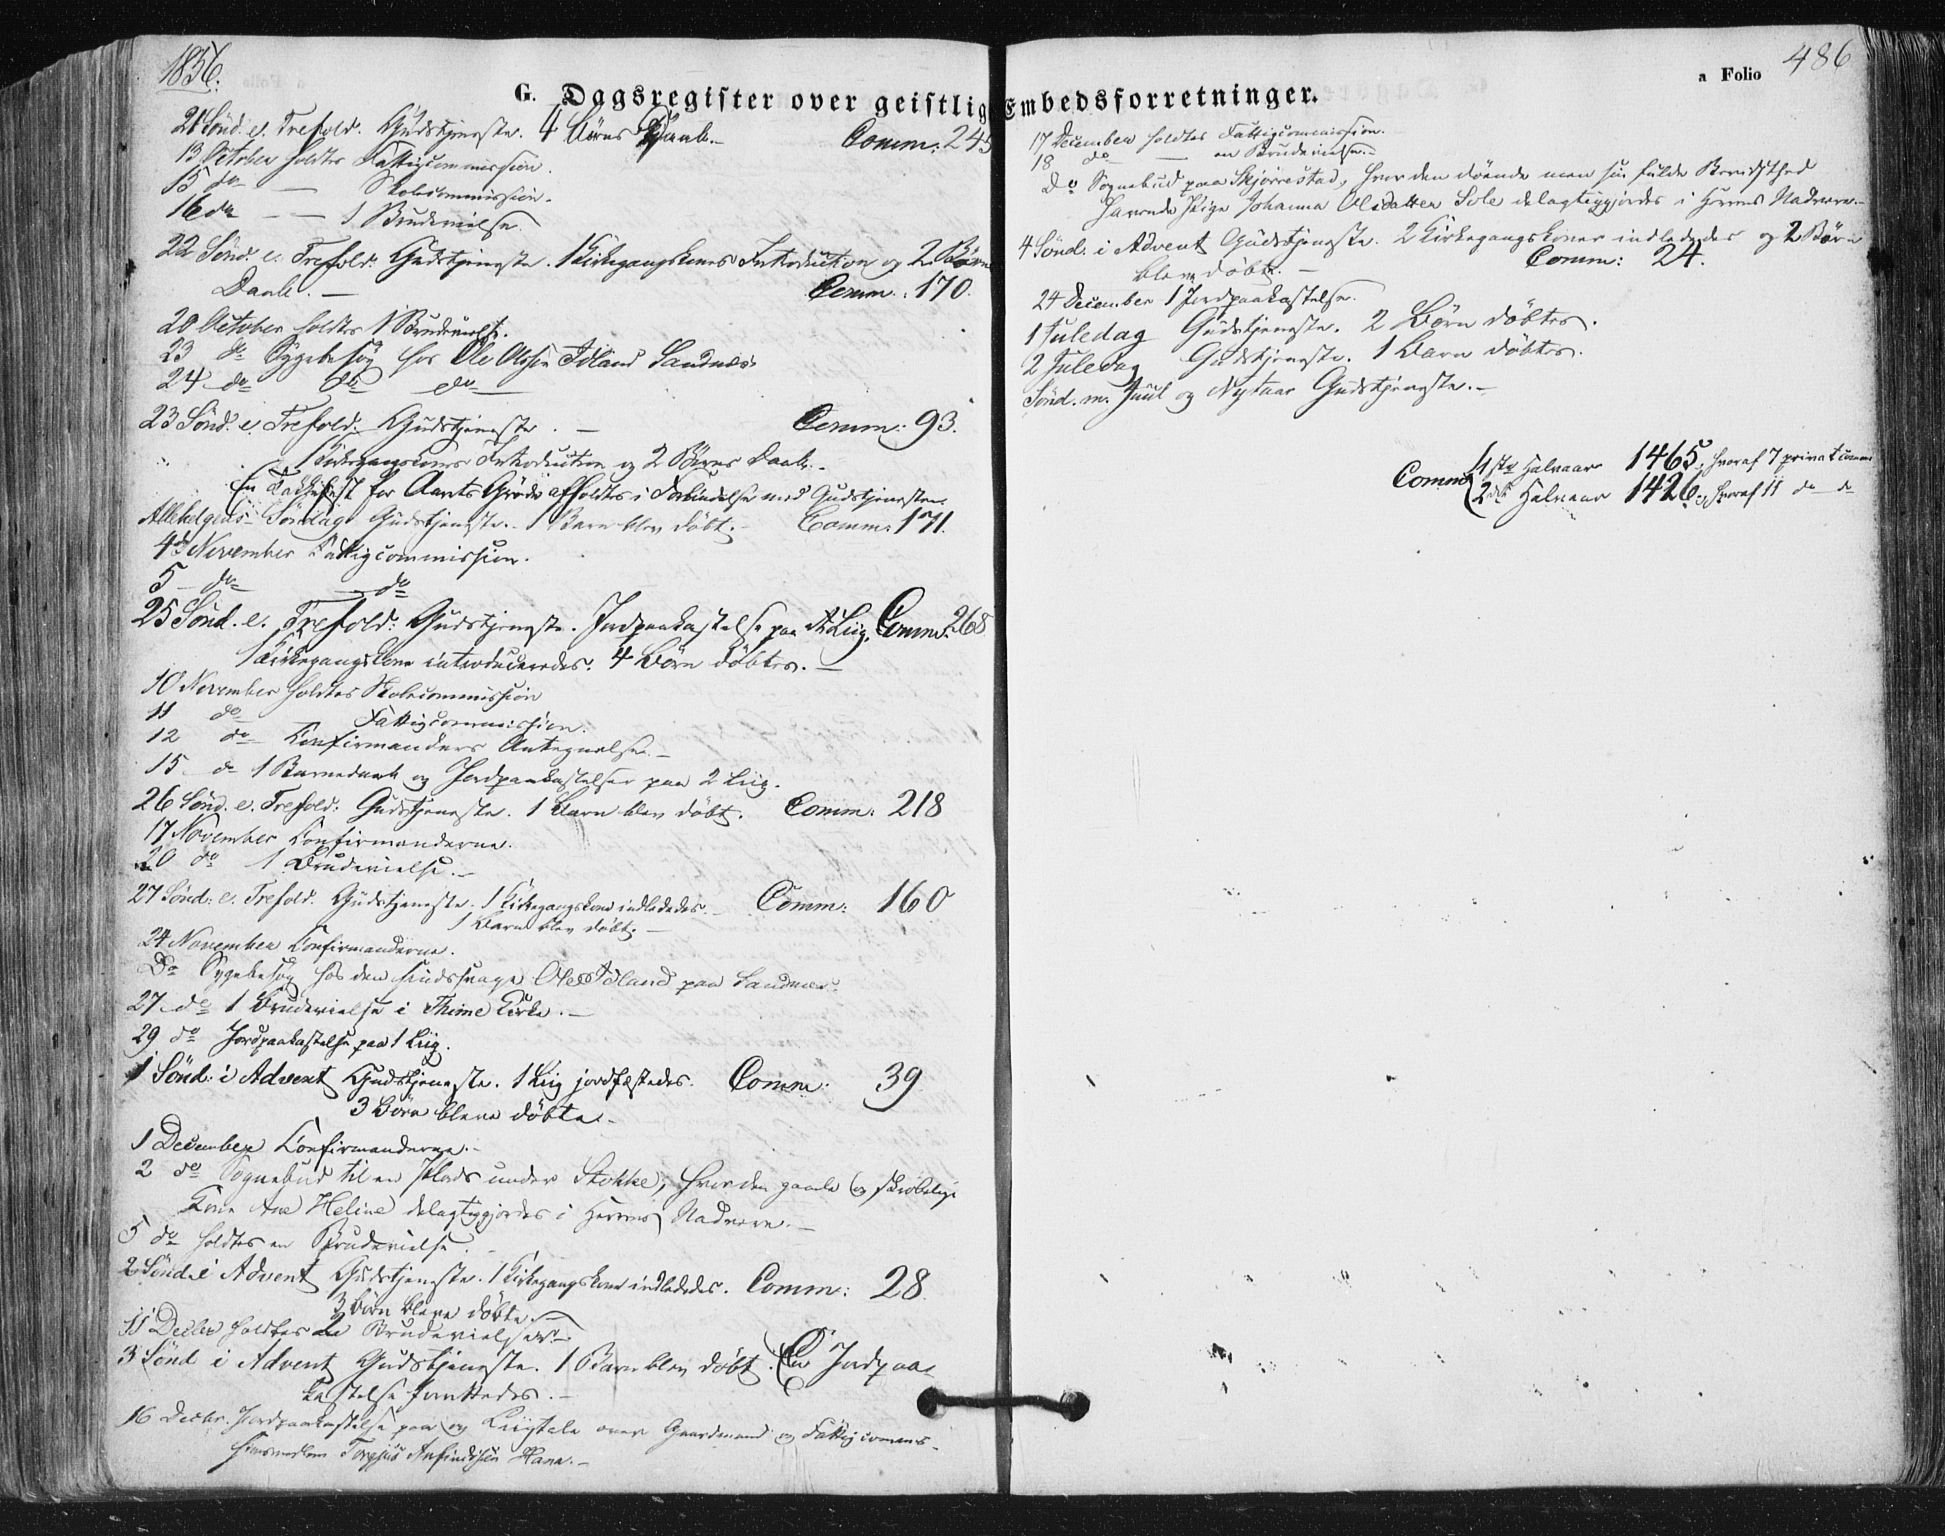 1856.
G. Dagsregister over geistlig
21 Sønd. e. Trefold. Gudstjeneste. 4 Børns Daab.- Comm: 245
13 October holdtes Fattigcommission.
15 do — Skolecommission.
16 do — — 1 Brudevielse
22 Sønd. e. Trefold: Gudstjeneste. 1 Kirkegangskones Introduction og 2 Børns
Daab. — Comm.: 170.
20 October holdtes 1 Brudevielse.
23 do Sygebesøg hos Ole Olsen Idland Sandnæs
24 do do do
23 Sønd. e. Trefold: Gudstjeneste. — Comm: 93.
1 Kirkegangskones Introduction og 2 Børns Daab.-
En Takkefest for Aarets Grøde afholdtes i Forbindelse med Gudstjenesten.
Allehelgens-Søndag Gudstjeneste.- 1 Barn blev døbt.- Comm: 171.
4de November Fattigcommission.
5 do — do
25 Sønd. e. Trefold: Gudstjeneste. Jordpaakastelse paa et Liig. Comm: 268
1 Kirkegangskone introduceredes. 4 Børn døbtes. —
10 November holdtes Skolecommission
11 do — Fattigcommission.
12 do Confirmanders Antegnelse.-
15 do 1 Barnedaab og Jordpaakastelser paa 2 Liig.
26 Sønd. e. Trefold: Gudstjeneste. 1 Barn blev døbt. Comm: 218
17 November Confirmanderne.
20 do 1 Brudevielse.-
27 Sønd: e. Trefold. Gudstjeneste. 1 Kirkegangskone indlededes.- Comm: 160
1 Barn blev døbt. —
24 November Confirmanderne.
Do Sygebesøg hos den sindssvage Ole Idland paa Sandnæs.
27 do 1 Brudevielse i Thime Kirke. —
29 do Jordpaakastelse paa 1 Liig.
1 Sønd: i Advent Gudstjeneste. 1 Liig jordfæstedes. Comm: 39
3 Børn bleve døbte.-
1 December Confirmanderne.-
2 do Sognebud til en Plads under Stokke, hvor den gamle og skrøbelige
Kone Ane Heline delagtiggjordes i Herrens Nadvere. —
5 do holdtes en Brudevielse.-
2 Sønd. i Advent Gudstjeneste. 1 Kirkegangskone indlededes. Comm: 28.
3 Børn bleve døbte.—
11 Decbr holdtes 2 Brudevielser.-
3 Sønd i Advent Gudstjeneste. 1 Barn blev døbt. En Jordpaa-
kastelse forrettedes.-
16 Decbr. Jordpaakastelse paa og Liigtale over Gaardmand og Fattigcommis-
sionsmedlem Torgius Anfindsen Hana.-
a Folio 486
Embedsforretninger.
17 December holdtes Fattigcommission.
18 do — en Brudevielse.-
Do Sognebud paa Skjørrestad, hvor den døende men sin fulde Bevidsthed
havende Pige Johanna Olsdatter Sole delagtiggjordes i Herrens Nadvere.-
4 Sønd: i Advent Gudstjeneste. 2 Kirkegangskoner indlededes og 2 Børn
bleve døbte. — Comm: 24.
24 December 1 Jordpaakastelse.
1 Juledag Gudstjeneste. 2 Børn døbtes.
2 Juledag Gudstjeneste. 1 Barn døbtes.
Sønd. m. Juul og Nytaar Gudstjeneste.-
Comm: 1ste Halvaar 1465, hvoraf 7 privat comm
2det Halvaar 1426., hvoraf 11 do do